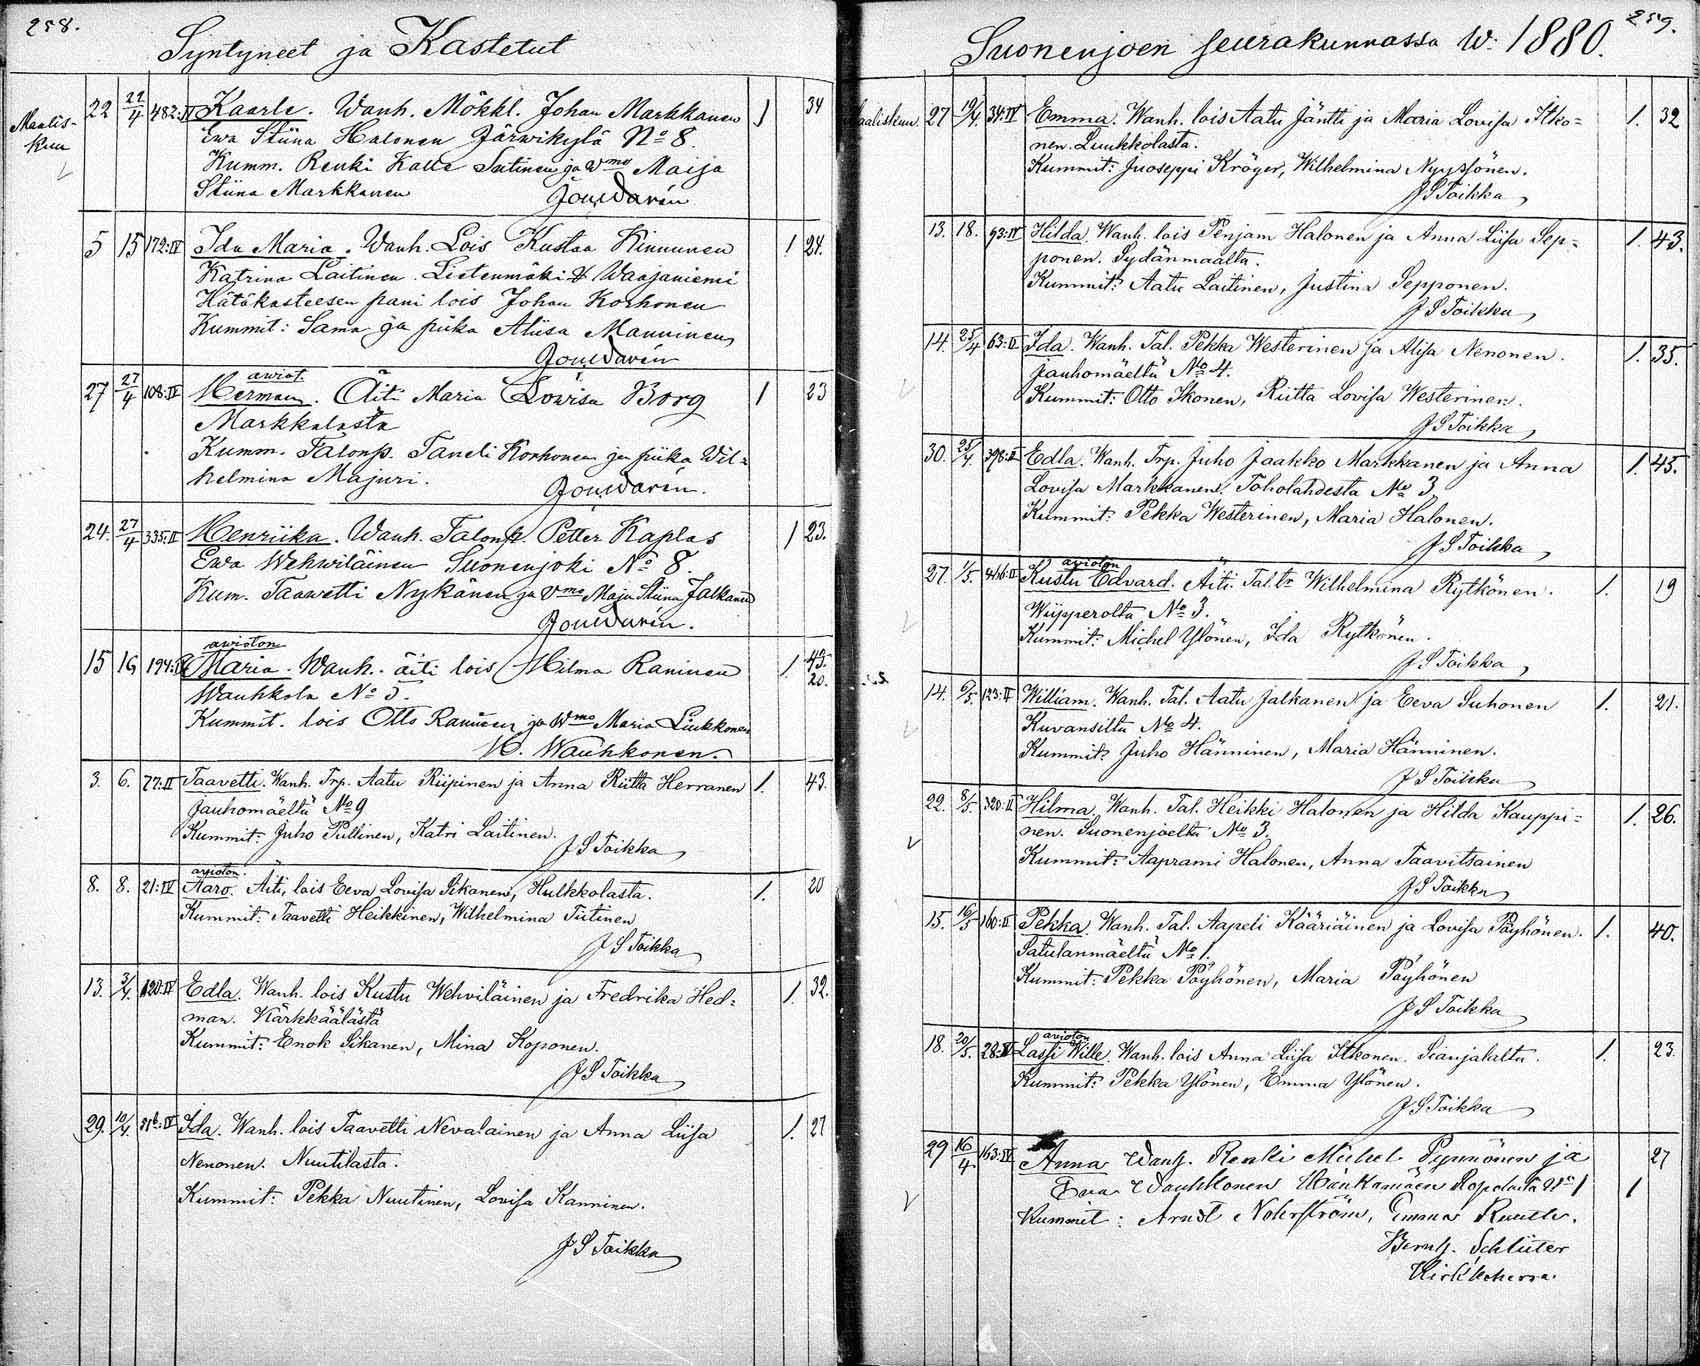 258.
Syntyneet ja Kastetut
Maalis-
kuu
22 22/4 482:II Kaarle. Wanh. Mökkl. Johan Markkanen 1 34
Ewa Stiina Halonen Järwikylä No 8.
Kumm. Renki Kalle Sutinen ja vmo Maija
Stiina Markkanen
5 15 172:IV Ida Maria. Wanh. Lois Kustaa Kinnunen 1 24.
Katrina Laitinen. Lietenmäki & Waajaniemi
Hätäkasteesen pani lois Johan Korhonen
Kummit: Sama ja piika Aliisa Manninen
awiot.
27 27/4 108:IV Herman. Äiti Maria Lowisa Borg 1 23
Markkalasta
Kumm. Talonp. Taneli Korhonen ja piika Wil-
helmina Majuri.
24. 27/4 335:II Henriika. Wanh. Talonp. Petter Kaplas 1 23.
Ewa Wehwiläinen Suonenjoki No 8.
Kum. Taawetti Nykänen ja vmo Maja Stiina Jalkanen
awioton
15 16 194: Maria. Wanh. äiti lois Hilma Raninen 1. 43. 20.
Wauhkola No 5.
Kummit. lois Otto Raninen ja Wmo Maria Liukkonen
H. Wauhkonen.
3. 6. 77:II Taavetti. Wanh. Trp. Aatu Riipinen ja Anna Riitta Herranen 1. 43.
Jauhomäeltä No 9
Kummit: Juho Pullinen, Katri Laitinen.
J S Toikka
avioton.
8. 8. 21:IV Aaro. Äiti, lois Eeva Lovisa Sikanen, Hulkkolasta. 1. 20
Kummit: Taavetti Heikkinen, Wilhelmina Tiitinen
J S Toikka
13. 3/4. 120:IV Edla. Wanh. lois Kustu Wehviläinen ja Fredrika Hed- 1. 32.
man. Kärkkäälästä
Kummit: Enok Sikanen, Mina Koponen.
J S Toikka
29. 10/4. IV Ida. Wanh. lois Taavetti Nevalainen ja Anna Liisa 1. 27
Nenonen. Nuutilasta.
Kummit: Pekka Nuutinen, Lovisa Kanninen.
J S Toikka
259.
Suonenjoen seurakunnassa W: 1880.
Maaliskuu. 27 19/4. 34:IV Emma. Wanh. lois Aatu Jäntti ja Maria Lovisa Itko- 1. 32
nen. Luukkolasta.
Kummit: Juoseppi Kröger, Wilhelmina Nyyssönen.
J S Toikka
13. 18. 93:IV Hilda. Wanh. lois Penjam Halonen ja Anna Liisa Sep- 1. 43.
ponen. Sydänmaalta.
Kummit: Aatu Laitinen, Justina Sepponen.
J S Toikka
14. 25/4 63:II Ida. Wanh. Tal. Pekka Westerinen ja Alisa Nenonen. 1. 35.
Jauhomäeltä No 4.
Kummit: Otto Ikonen, Riitta Lovisa Westerinen.
J S Toikka
30. 25/4 398:II Edla. Wanh. Trp. Juho Jaakko Markkanen ja Anna 1. 45.
Lovisa Markkanen. Toholahdesta No 3
Kummit: Pekka Westerinen, Maria Halonen.
J S Toikka
avioton
27. 1/5. 446:II Kustu Edvard. Äiti. Tal. tr Wilhelmina Rytkönen. 1. 19
Wiipperolta No 3.
Kummit: Michel Ylönen, Ida Rytkönen.
J S Toikka
14. 2/5. 123:II William. Wanh. Tal. Aatu Jalkanen ja Eeva Suhonen 1. 21.
Kuvansilta No 4.
Kummit: Juho Hänninen, Maria Hänninen.
J S Toikka
22. 8/5. 320:II Hilma. Wanh. Tal. Heikki Halonen ja Hilda Kauppi- 1. 26.
nen. Suonenjoelta No 3.
Kummit: Aaprami Halonen, Anna Taavitsainen
J S Toikka
15. 16/5 160:II Pekka. Wanh. Tal. Aapeli Kääriäinen ja Lovisa Pöyhönen. 1. 40.
Satulanmäeltä No 1.
Kummit: Pekka Pöyhönen, Maria Pöyhönen
J S Toikka
avioton
18. 20/5. 28:IV Lassi Wille. Wanh. lois Anna Liisa Itkonen. Sianjalalta. 1. 23.
Kummit: Pekka Ylönen, Emma Ylönen.
J S Toikka
29 16/4. 163:IV Anna Wanh. Renki Michel Pynnönen ja 27
Ewa Wauhkonen No 1 1
Kummit: Arndt Nohrström, Emma Ruuth.
Bernh. Schlüter
Kirkkoherra.